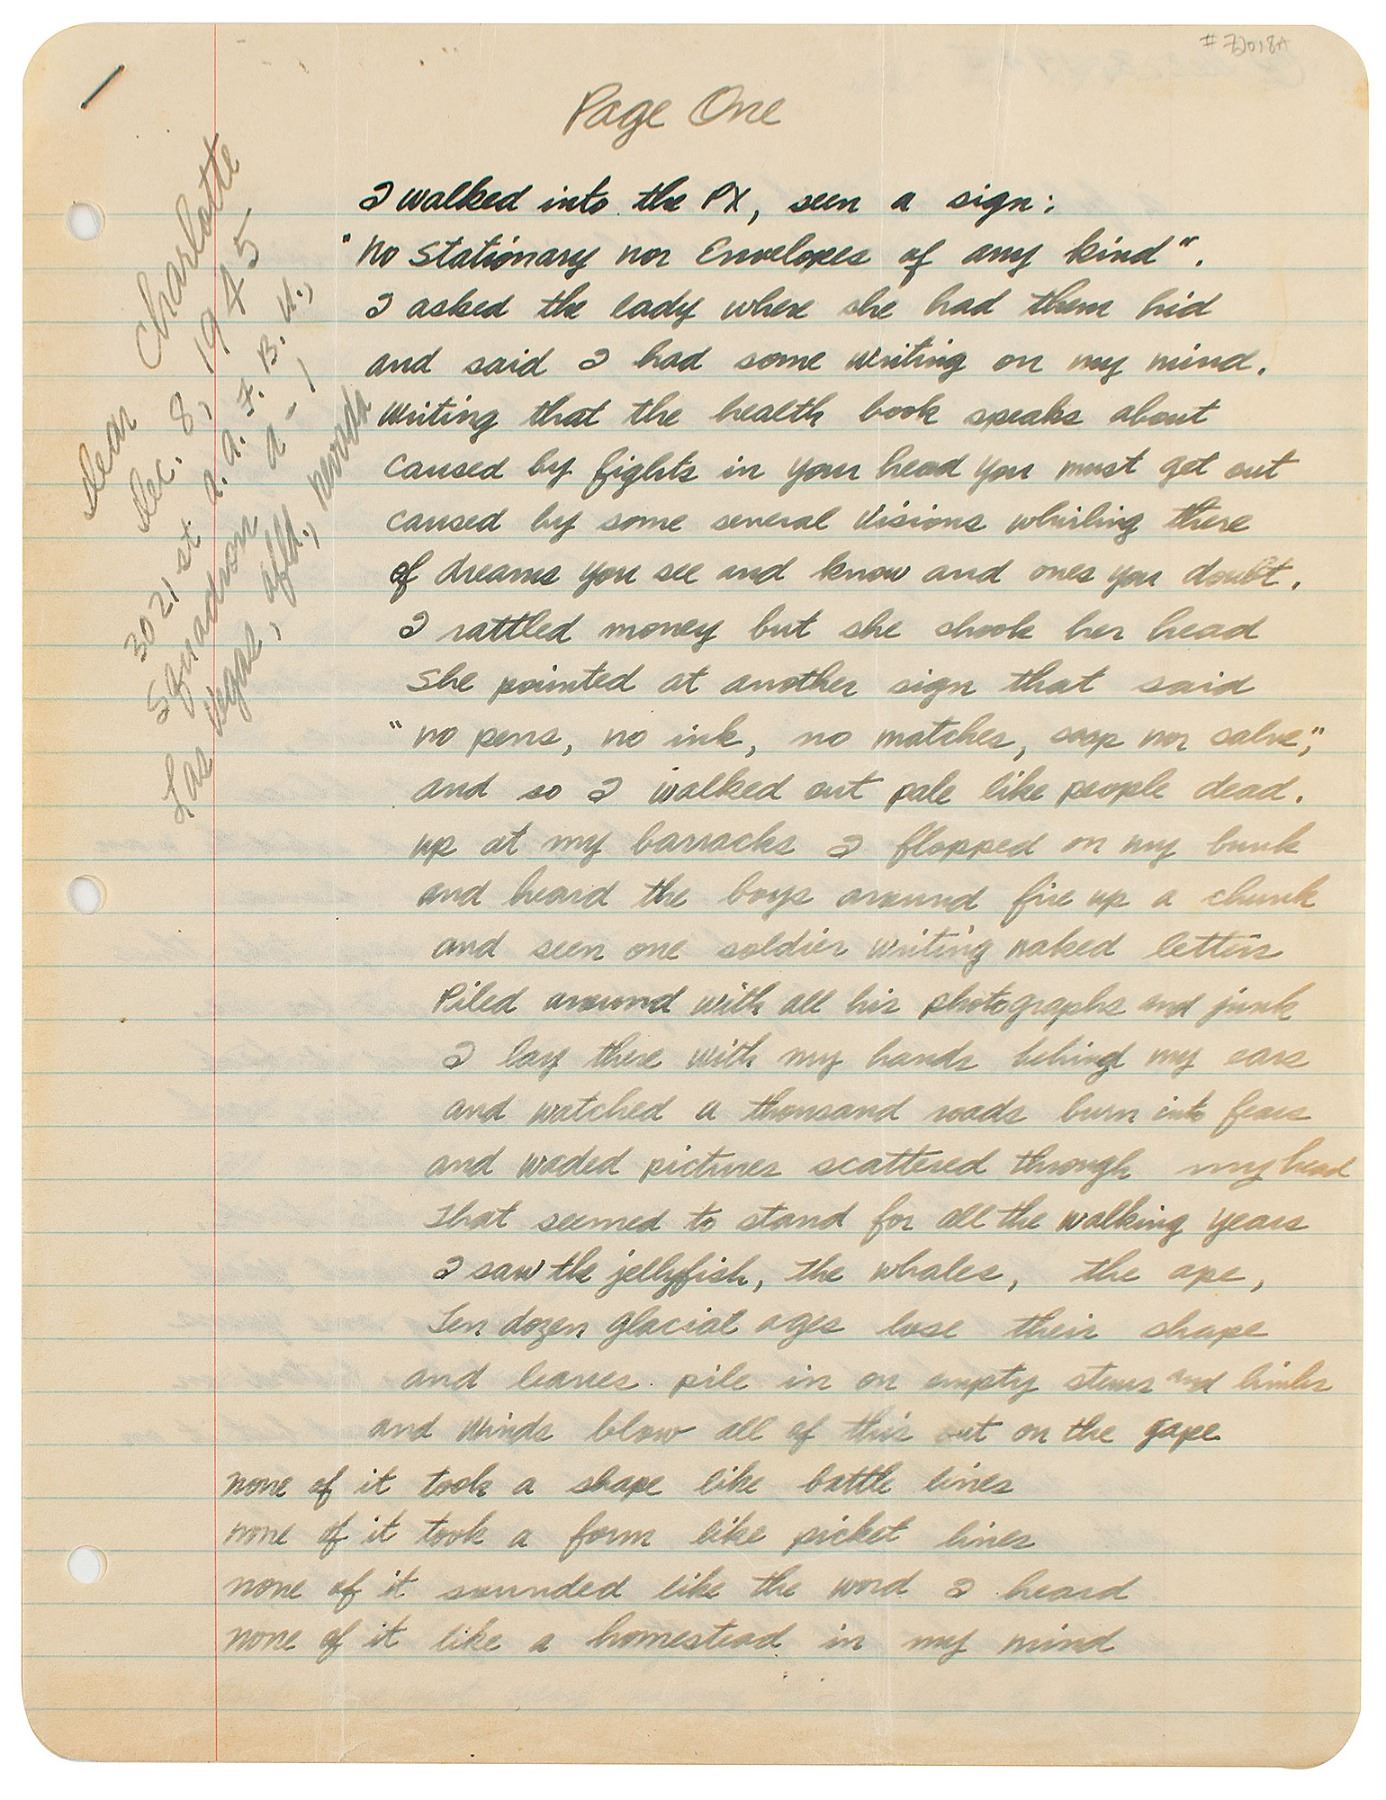 #72018A
Page One
Dear Charlotte
Dec. 8, 1945
3021 st. A. A. F. B. U.,
Squadron A-1
Las Vegas, Afld., Nevada
I walked into the PX, seen a sign:
"No Stationary nor Envelopes of any kind".
I asked the lady where she had them hid
and said I had some writing on my mind.
Writing that the health book speaks about
caused by fights in your head you must get out
caused by some several visions whirling there
of dreams you see and know and ones you doubt.
I rattled money but she shook her head
She pointed at another sign that said
"no pens, no ink, no matches, soap nor salve",
and so I walked out pale like people dead.
up at my barracks I flopped on my bunk
and heard the boys around fire up a chunk
and seen one soldier writing naked letters
Piled around with all his photographs and junk
I lay there with my hands behind my ears
and watched a thousand roads burn into fears
and waded pictures scattered through my head
That seemed to stand for all the walking years
I saw the jellyfish, the whales, the ape,
Ten dozen glacial ages lose their shape
and leaves pile in on empty stems and limbs
and winds blow all of this out on the gape
none of it took a shape like battle lines
none of it took a form like picket lines
none of it sounded like the word I heard
none of it like a homestead in my mind